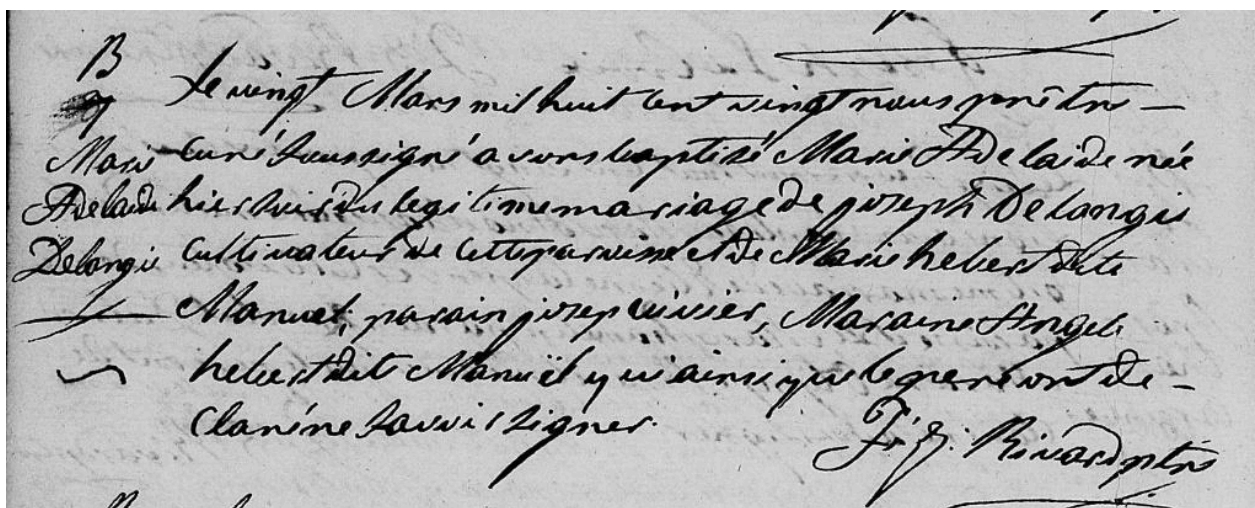 B
9
Marie
Adelaide
Delangis
Le vingt Mars mil huit cent vingt nous prêtre —
Curé Soussigné avons baptisé Marie Adelaide née
hier soir du legitime mariage de joseph Delangis
cultivateur de cette paroisse et de Marie hebert dite
Manuel, parain josep vivier, Maraine Angele
hebert dite Manuël qui ainsi que le pere ont dé -
claré ne savoir signer.
Rivard ptre